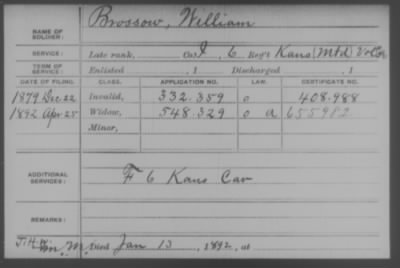 NAME OF SOLDIER: Brossow, William
SERVICE: Late rank, Co. I, 6 Reg't Kans (Mtd) Vol Cav
TERM OF SERVICE: Enlisted , 1 Discharged , 1
DATE OF FILING. CLASS. APPLICATION NO. LAW. CERTIFICATE NO.
1879 Dec 22 Invalid, 332.359 o 408.988
1892 Apr 25 Widow, 548.329 o a 655982
Minor,
ADDITIONAL SERVICES: F 6 Kans Cav
REMARKS:
J.H. Died Jan 13, 1892, at